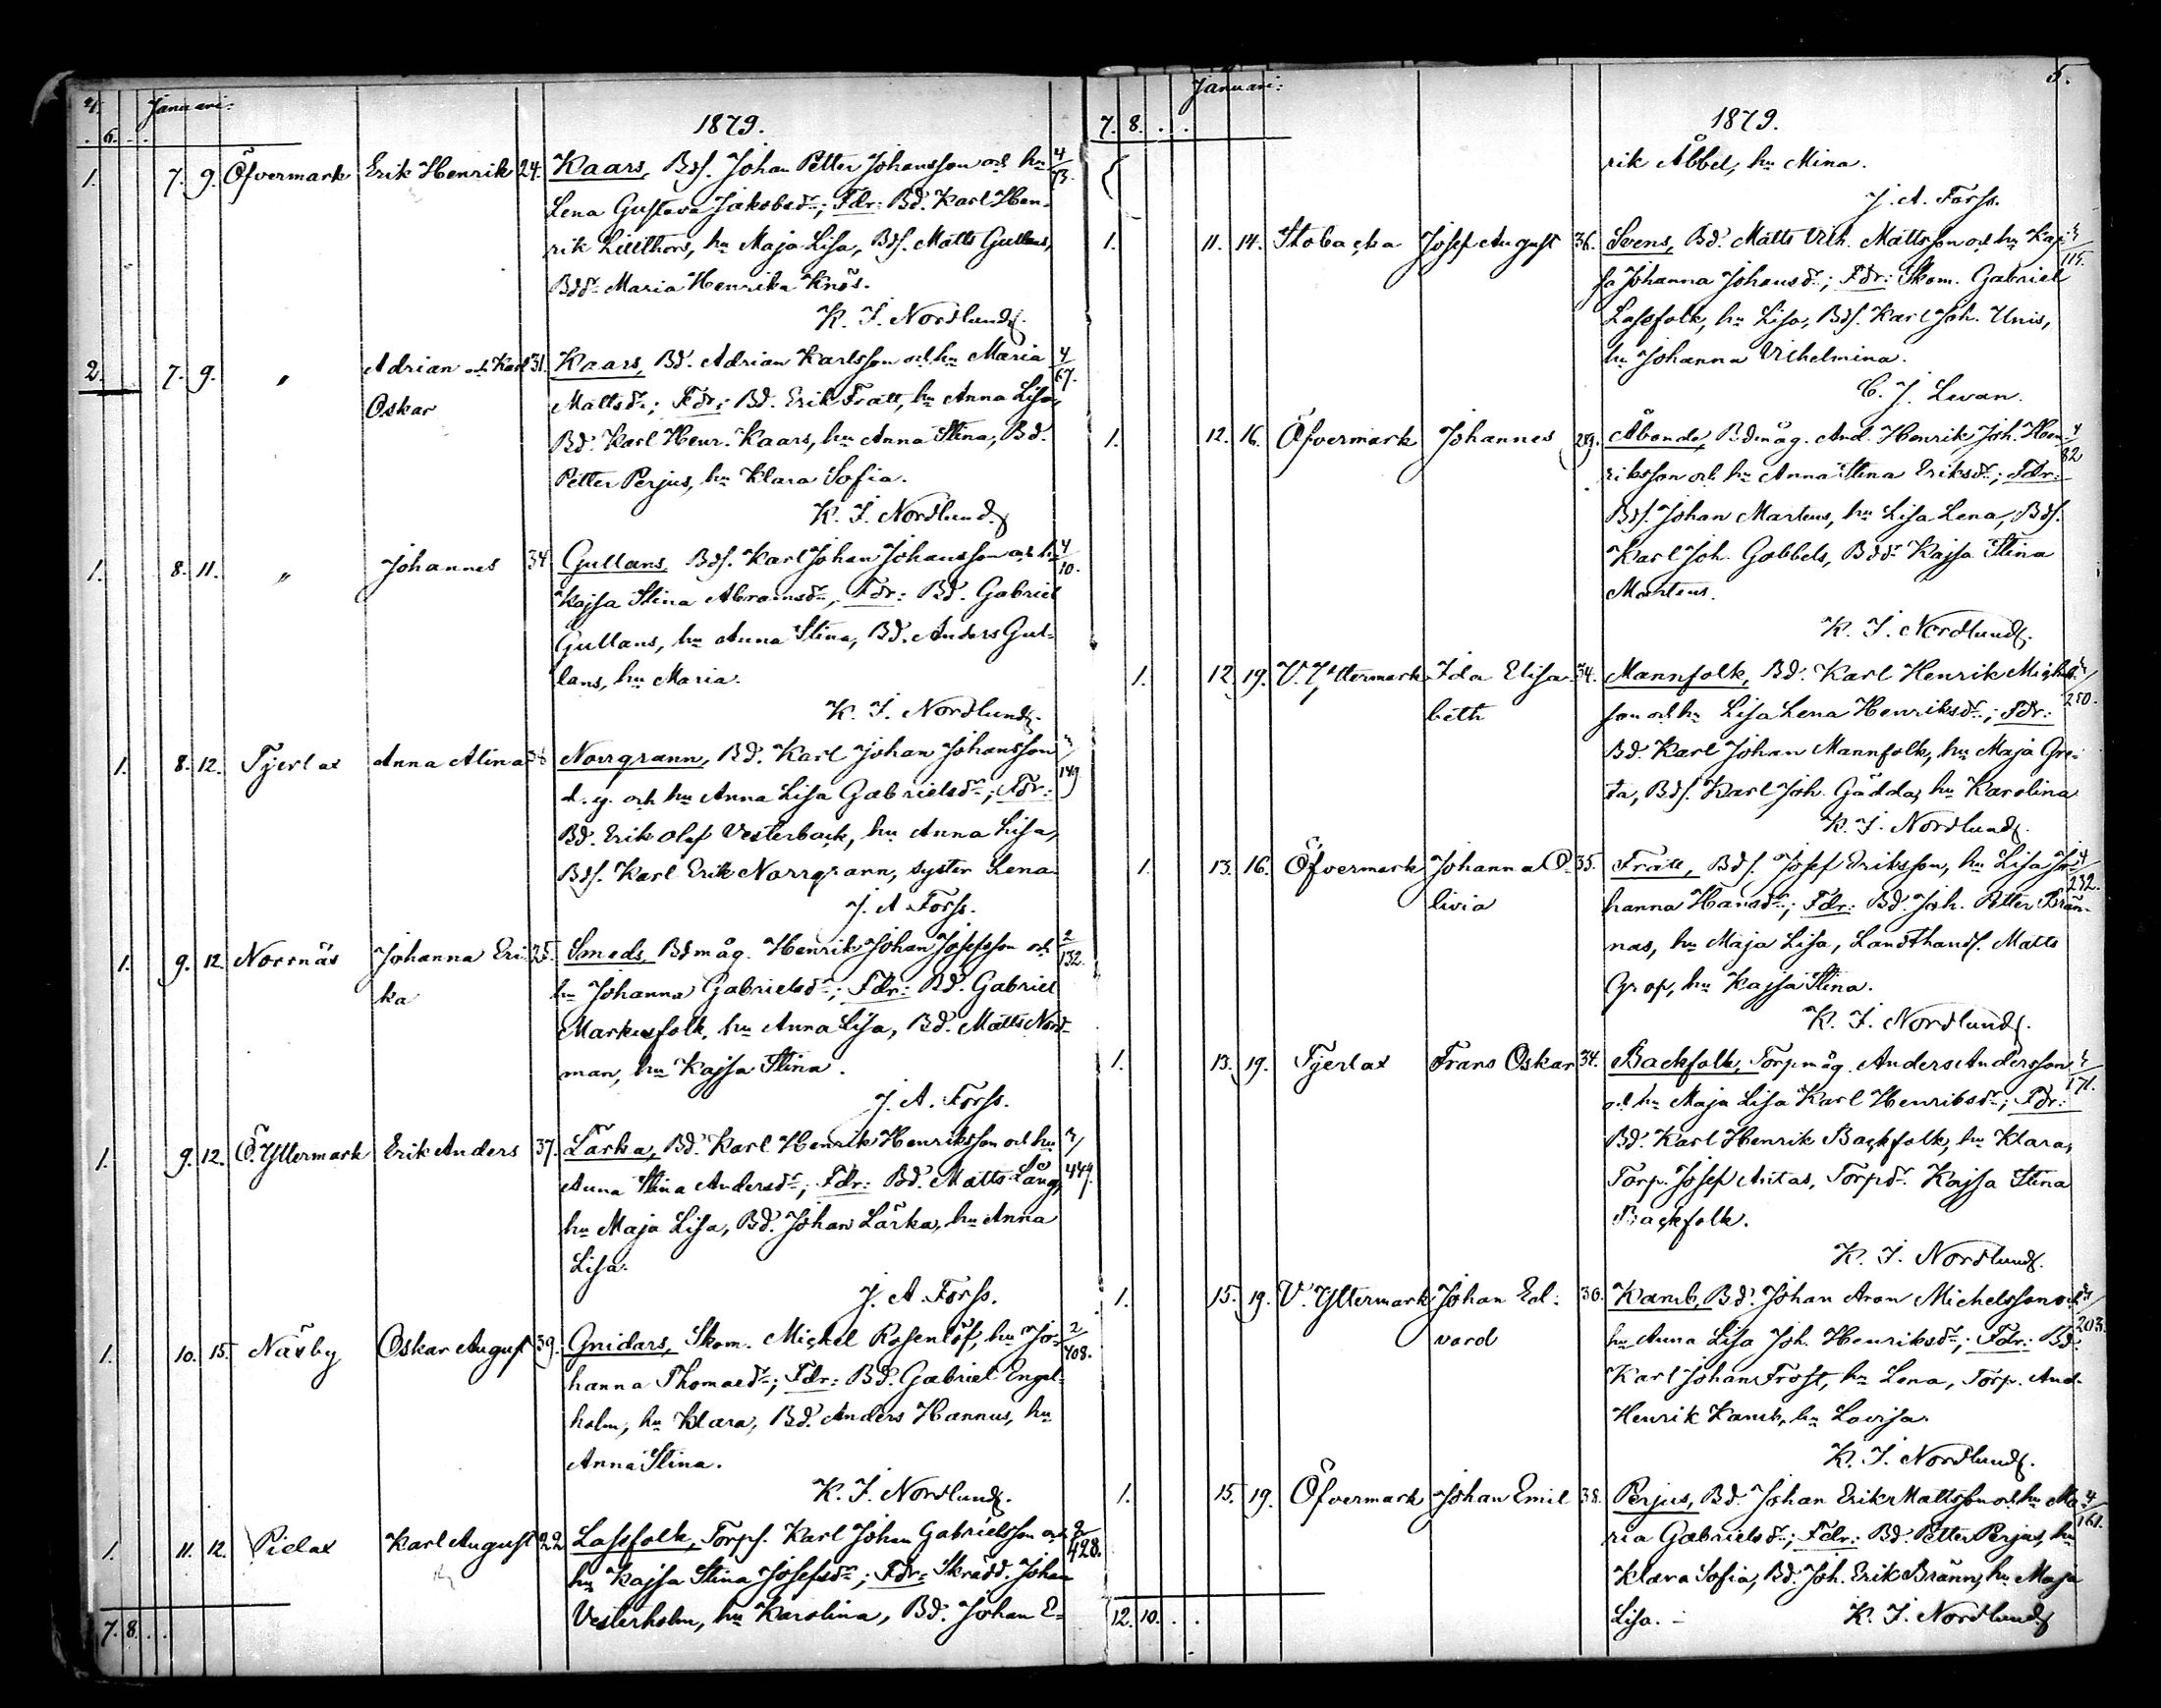 4.
Januari:
. 6. . .
1879.
1. 7. 9. Öfvermark Erik Henrik 24. Kaars, Bdf. Johan Petter Johansson och hu 4/73.
Lena Gustava Jakobsdr; Fdr: Bd. Karl Hen-
rik Lillthors, hu Maja Lisa, Bdf. Matts Gullans,
Bddr Maria Henrika Knös.
K. J. Nordlund.
2. 7. 9. " Adrian och Karl 31. Kaars, Bd. Adrian Karlsson och hu Maria 4/67.
Oskar Mattsdr; Fdr: Bd. Erik Frätt, hu Anna Lisa,
Bd. Karl Henr. Kaars, hu Anna Stina, Bd.
Petter Perjus, hu Klara Sofia.
K. J. Nordlund.
1. 8. 11. " Johannes 34 Gullans, Bdf. Karl Johan Johansson och hu 4/10.
Kajsa Stina Abramsdr, Fdr: Bd. Gabriel
Gullans, hu Anna Stina, Bd. Anders Gul-
lans, hu Maria.
K. J. Nordlund.
1. 8. 12. Tjerlax Anna Alina Norrgrann, Bd. Karl Johan Johansson 149
d. y. och hu Anna Lisa Gabrielsdr; Fdr:
Bd. Erik Olof Vesterback, hu Anna Lisa,
Bdf. Karl Erik Norrgrann, syster Lena.
J. A. Forss.
1. 9. 12. Norrnäs Johanna Eri- 25. Smeds, Bdmåg. Henrik Johan Josefsson och 2/132.
ka hu Johanna Gabrielsdr; Fdr: Bd. Gabriel
Markusfolk, hu Anna Lisa, Bd. Matts Nord-
man, hu Kajsa Stina.
J. A. Forss.
1. 9. 12. Ö. Yttermark Erik Anders 37. Lärka, Bd. Karl Henrik Henriksson och hu 449.
Anna Stina Andersdr; Fdr: Bd. Matts Lång,
hu Maja Lisa, Bd. Johan Lärka, hu Anna
Lisa.
J. A. Forss.
1. 10. 15. Näsby Oskar August 39. Gnidars, Skom. Mickel Rosenlöf, hu Jo- 2/408.
hanna Thomasdr; Fdr: Bd. Gabriel Engel-
holm, hu Klara, Bd. Anders Hannus, hu
Anna Stina.
K. J. Nordlund.
1. 11. 12. Pielax Karl August 22 Lassfolk, Torpf. Karl Johan Gabrielsson och 2/428.
hu Kajsa Stina Josefsdr; Fdr: Skrädd. Johan
Vesterholm, hu Karolina, Bd. Johan E-
7. 8. . .
Januari:
5.
7. 8. . .
1879.
rik Åbbel, hu Mina.
J. A. Forss.
1. 11. 14. Stobacka Josef August 36. Svens, Bd. Matts Vilh. Mattsson och hu Kaj- 115.
sa Johanna Johansdr; Fdr: Skom. Gabriel
Lassfolk, hu Lisa, Bdf. Karl Joh. Unis,
hu Johanna Vilhelmina.
C. J. Levan.
1. 12. 16. Öfvermark Johannes 29. Åbonde, Bdmåg. And. Henrik Joh. Hen- 4/82
riksson och hu Anna Stina Eriksdr; Fdr:
Bdf. Johan Martens, hu Lisa Lena, Bdf.
Karl Joh. Gabbels, Bddr Kajsa Stina
Martens.
K. J. Nordlund.
1. 12. 19. V. Yttermark Ida Elisa- 34. Mannfolk, Bd. Karl Henrik Michels- 250.
beth son och hu Lisa Lena Henriksdr; Fdr:
Bd. Karl Johan Mannfolk, hu Maja Gre-
ta, Bdf. Karl Joh. Gädda, hu Karolina
K. J. Nordlund.
1. 13. 16. Öfvermark Johanna O- 35. Frätt, Bdf. Josef Eriksson, hu Lisa Jo- 4/232.
livia hanna Hansdr; Fdr: Bd. Joh. Petter Brän-
nas, hu Maja Lisa, Landthandl. Matts
Grop, hu Kajsa Stina.
K. J. Nordlund.
1. 13. 19. Tjerlax Frans Oskar 34. Backfolk, Torpmåg. Anders Andersson 171.
och hu Maja Lisa Karl Henriksdr; Fdr:
Bd. Karl Henrik Backfolk, hu Klara,
Torp. Josef Antas, Torpdr Kajsa Stina
Backfolk.
K. J. Nordlund.
1. 15. 19. V. Yttermark Johan Ed- 30. Kamb, Bd. Johan Aron Michelsson och 203.
vard hu Anna Lisa Joh. Henriksdr; Fdr: Bd.
Karl Johan Frost, hu Lena, Torp. And.
Henrik Kamb, hu Lovisa.
K. J. Nordlund.
1. 15. 19. Öfvermark Johan Emil 38. Perjus, Bd. Johan Erik Mattsson och hu Ma- 4/161.
ria Gabrielsdr; Fdr: Bd. Petter Perjus, hu
Klara Sofia, Bd. Joh. Erik Bränn, hu Maja
Lisa. - K. J. Nordlund
12. 10. . .